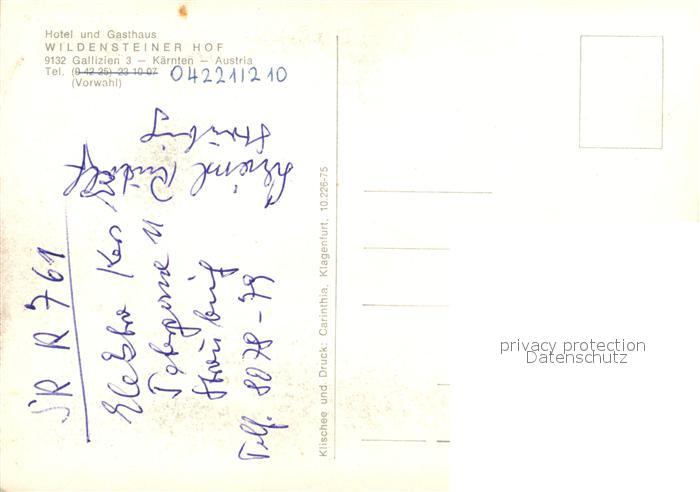 Hotel und Gasthaus
WILDENSTEINER HOF
9132 Gallizien 3 — Kärnten — Austria
Tel. (0 42 25) 23 10 07 042211210
(Vorwahl)
SR R 761
Elektro
11
Straubing
Telf. 8078-79
Rudolf
Straubing
Klischee und Druck: Carinthia, Klagenfurt, 10.226-75
privacy protection
Datenschutz